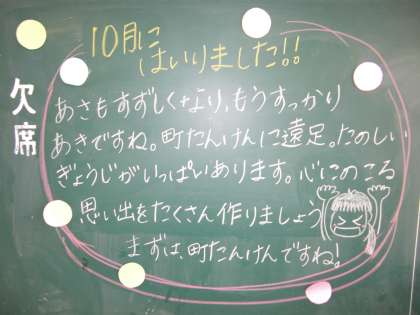 欠席
10月に
はいりました!!
あさもすずしくなり、もうすっかり
あきですね。町たんけんに遠足。たのしい
ぎょうじがいっぱいあります。心にのこる
思い出をたくさん作りましょう
まずは、町たんけんですね!